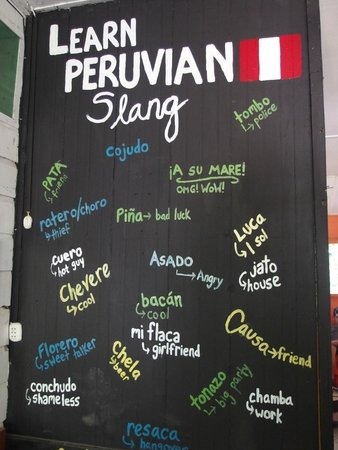 LEARN
PERUVIAN
Slang
tombo
↳police
cojudo
PATA
↳friend
¡A SU MARE!
OMG! WOW!
ratero/choro
↳thief
Piña→bad luck
Luca
↳1 sol
cuero
↳hot guy
ASADO
↳Angry
jato
↳house
Chevere
↳cool
bacán
↳cool
mi flaca
↳girlfriend
Causa→friend
Florero
↳sweet talker
chela
↳beer
conchudo
↳shameless
tonazo
↳big party
chamba
↳work
resaca
↳hangover